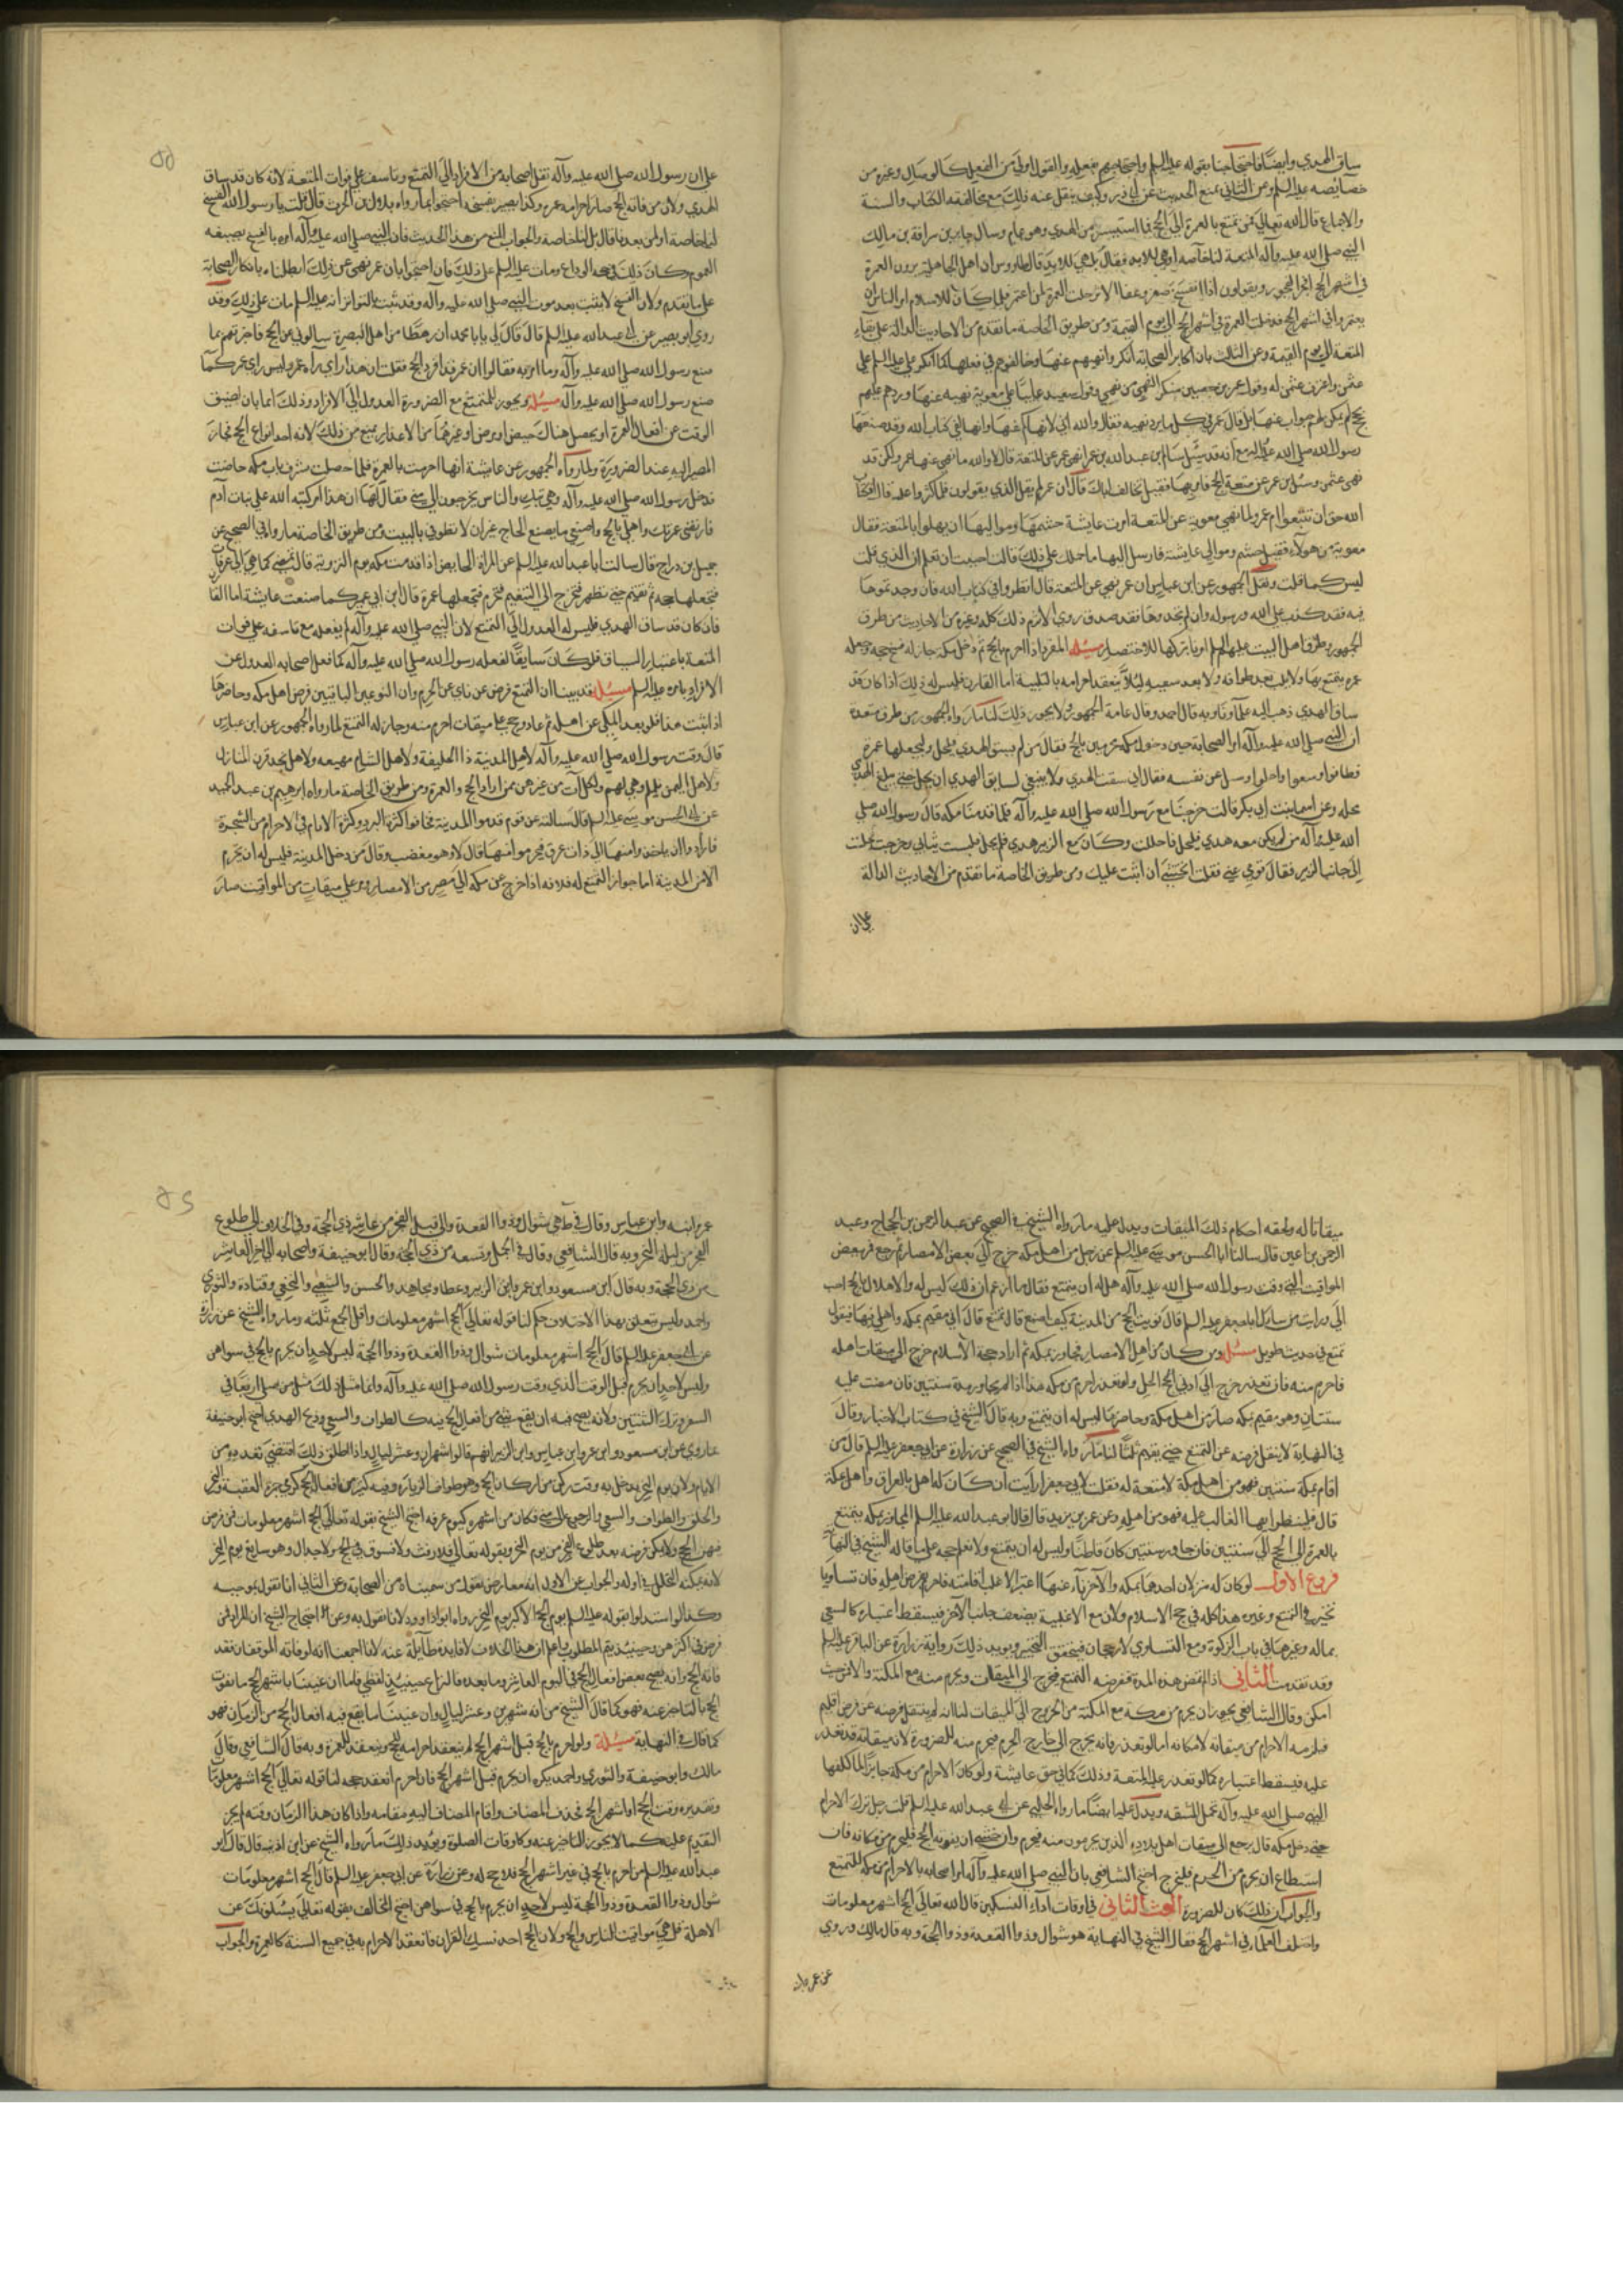 ساق الهدي وايضا فاحتجاجنا بقوله عليه السلم واحتجاجهم بفعله والقول اولى من الفعل كالوصال وغيره من
خصايصه عليه السلم وعن الثاني بمنع الحديث عن ابي ذر وكيف ينقل عنه ذلك مع مخالفته الكتاب والسنة
والاجماع قال الله تعالى فمن تمتع بالعمرة الى الحج فما استيسر من الهدي وهو عام وسال جابر بن سراقة بن مالك
النبي صلى الله عليه وآله المتعة لنا خاصه او هي للابد فقال بل هي للابد قال طاوس ان اهل الجاهلية يرون العمرة
في اشهر الحج افجر الفجور ويقولون اذا انفسخ صفر وعفا الاثر حلت العمرة لمن اعتمر فلما كان الاسلام امر الناس ان
يعتمروا في اشهر الحج فدخلت العمرة في اشهر الحج الى يوم القيمة ومن طريق الخاصة ما تقدم من الاحاديث الدالة على بقاء
المتعة الى يوم القيمة وعن الثالث بان اكابر الصحابة انكروا نهيهم عنها وخالفوهم في فعلها كما انكر علي عليه السلم على
عثمن واعترف عثمن له وقول عمرن بن حصين منكرا لنهي من نهي وقول سعد عايبا على معوية نهيه عنها وردهم عليهم
بحج لم يكن لهم جواب عنها بل قال عمر في كلامه ما يرد نهيه فقال والله اني لانهاكم عنها وانها لفي كتاب الله وقد صنعها
رسول الله صلى الله عليه وآله مع انه قد سئل سالم بن عبد الله بن عمر انهى عمر عن المتعة قال لا والله ما نهى عنها عمر ولكن قد
نهى عثمن وسئل ابن عمر عن متعة الحج فامر بها فقيل انك تخالف اباك قال ان عمر لم يقل الذي يقولون فلما اكثروا عليه قال افكتاب
الله حق ان تتبعوا ام عمر ولما نهي معوية عن المتعة امرت عايشة حشمها ومواليها ان يهلوا بالمتعة فقال
معوية من هولاء فقيل حشم وموالي عايشة فارسل اليها ما حملك على ذلك قالت احببت ان تعلم ان الذي قلت
ليس كما قلت ونقل الجمهور عن ابن عباس ان عمر نهى عن المتعة قال انظروا في كتاب الله فان وجدتموها
فيه فقد كذب على الله ورسوله وان لم تجدوها فقد صدق روى الاثرم ذلك كله وغيره من الاحاديث من طرق
الجمهور وطرق اهل البيت عليهم السلم اوتنا بتركها للاختصار مسئله المفرد اذا احرم بالحج ثم دخل مكة جاز له فسخ حجه وجعله
عمره يتمتع بها ولا يلبي بعد طوافه ولا بعد سعيه ليلا ينعقد احرامه بالتلبية اما القارن فليس له ذلك اذا كان قد
ساق الهدي ذهب اليه علماؤنا وبه قال احمد وقال عامة الجمهور لا يجوز ذلك لنا ما رواه الجمهور من طرق متعددة
ان النبي صلى الله عليه وآله امر الصحابة حين دخوله مكة محرمين بالحج فقال من لم يسق الهدي فليحل وليجعلها عمرة
فطافوا وسعوا واحلوا وسئل عن نفسه فقال اني سقت الهدي ولا ينبغي لسايق الهدي ان يحل حتى يبلغ الهدي
محله وعن اسما بنت ابي بكر قالت خرجنا مع رسول الله صلى الله عليه وآله فلما قدمنا مكه قال رسول الله صلى
الله عليه وآله من لم يكن معه هدي فليحل فاحللت وكان مع الزبير هدي فلم يحل فلبست ثيابي وخرجت فجلست
الى جانب الزبير فقال قومي عني فقلت اتخشى ان اثب عليك ومن طريق الخاصة ما تقدم من الاحاديث الدالة
على ان
على ان رسول الله صلى الله عليه وآله نقل اصحابه من الافراد الى التمتع وتاسف على فوات المتعة لانه كان قد ساق
الهدي ولان من فاته الحج صار احرامه عمره وكذا يصير بفسخه احتجوا بما رواه بلال بن الحرث قال قلت يا رسول الله الفسخ
لنا خاصة او لمن بعدنا قال بل لنا خاصة والجواب المنع من هذا الحديث فان النبي صلى الله عليه وآله امره بالفسخ بصيغه
العموم كان ذلك في حجة الوداع ومات عليه السلم على ذلك فان احتجوا بان عمر نهى عن ذلك ابطلناه بانكار الصحابة
على ما تقدم ولان الفسخ لا يثبت بعد موت النبي صلى الله عليه وآله وقد ثبت بالتواتر انه عليه السلم مات على ذلك وقد
روى ابو بصير عن ابي عبد الله عليه السلم قال قال لي يا با محمد ان رهطا من اهل البصرة سالوني عن الحج فاخبرتهم بما
صنع رسول الله صلى الله عليه وآله وما امر به فقالوا ان عمر قد افرد الحج فقلت ان هذا راى رآه عمر وليس راى عمر كما
صنع رسول الله صلى الله عليه وآله مسئله ويجوز للمتمتع مع الضرورة العدول الى الافراد وذلك اما بان يضيق
الوقت عن افعال العمرة او يحصل هناك حيض او مرض او غيرهما من الاعذار يمنع من ذلك لانه احد انواع الحج فجاز
المصير اليه عند الضرورة ولما رواه الجمهور عن عايشة انها احرمت بالعمرة فلما حصلت بشرف باب مكه حاضت
فدخل رسول الله صلى الله عليه وآله وهي تبكي والناس يخرجون الى منى فقال لها ان هذا امر كتبه الله على بنات آدم
فارفضي عمرتك واهلي بالحج واصنعي ما يصنع الحاج غير ان لا تطوفي بالبيت ومن طريق الخاصة ما رواه في الصحيح عن
جميل بن دراج قال سالت ابا عبد الله عليه السلم عن المراة الحايض اذا قدمت مكه يوم التروية قال تمضي كما هي الى عرفات
فتجعلها حجه ثم تقيم حتى تطهر فتخرج الى التنعيم فتحرم فتجعلها عمرة قال ابن ابي عمير كما صنعت عايشة اما القا
فان كان قد ساق الهدي فليس له العدول الى التمتع لان النبي صلى الله عليه وآله لم يفعله مع تاسفه على فوات
المتعة باعتبار السياق فلو كان سايغا لفعله رسول الله صلى الله عليه وآله كما فعل اصحابه العدول عن
الافراد بامره عليه السلم مسئله قد بينا ان التمتع فرض من ناى عن الحرم وان النوعين الباقيين فرض اهل مكه وحاضرها
اذا ثبت هذا فلو بعد المكي عن اهله ثم عاد وحج على ميقات احرم منه وجاز له التمتع لما رواه الجمهور عن ابن عباس
قال وقت رسول الله صلى الله عليه وآله لاهل المدينة ذا الحليفة ولاهل الشام مهيعه ولاهل نجد قرن المنازل
ولاهل اليمن يلملم وهي لهم ولكل آت من غيرهن ممن اراد الحج والعمرة ومن طريق الخاصة ما رواه ابرهيم بن عبد الحميد
عن ابي الحسن موسى عليه السلم قال سالته عن قوم قدموا المدينة فخافوا كثرة البرد وكثرة الايام في الاحرام من الشجرة
فارادوا ان ياخذوا منها الى ذات عرق فيحرموا منها فقال لا وهو مغضب وقال من دخل المدينة فليس له ان يحرم
الا من المدينة اما جواز التمتع له فلانه اذا خرج عن مكه الى مصر من الامصار ومر على ميقات من المواقيت صار
ميقاتا له ولحقه احكام ذلك الميقات ويدل عليه ما رواه الشيخ في الصحيح عن عبد الرحمن بن الحجاج وعبد
الرحمن بن اعين قال سالنا ابا الحسن موسى عليه السلم عن رجل من اهل مكه خرج الى بعض الامصار ثم رجع فمر ببعض
المواقيت التي وقت رسول الله صلى الله عليه وآله هل له ان يتمتع فقال ما ازعم ان ذلك ليس له والاهلال بالحج احب
الي ورايت من سال ابا جعفر عليه السلم قال نويت الحج من المدينة كيف اصنع قال تمتع قال اني مقيم بمكه واهلي فيها فيقول
تمتع في حديث طويل مسئله ومن كان من اهل الامصار فجاور بمكه ثم اراد حجة الاسلام خرج الى ميقات اهله
فاحرم منه فان تعذر خرج الى ادنى الحل ولو تعذر احرم من مكه هذا اذا لم يجاور مدة سنتين فان مضت عليه
سنتان وهو مقيم بمكه صار من اهل مكة وحاضرها ليس له ان يتمتع وبه قال الشيخ في كتاب الاخبار وقال
في النهاية لا ينتقل فرضه عن التمتع حتى يقيم ثلثا لنا ما رواه الشيخ في الصحيح عن زرارة عن ابي جعفر عليه السلم قال من
اقام بمكة سنتين فهو من اهل مكة لا متعة له فقلت لابي جعفر ارايت ان كان له اهل بالعراق واهل بمكة
قال فلينظر ايهما الغالب عليه فهو من اهله وعن عمر بن يزيد قال قال ابو عبد الله عليه السلم المجاور بمكه يتمتع
بالعمرة الى الحج الى سنتين فان جاوز سنتين كان قاطنا وليس له ان يتمتع ولا نعلم حجه على ما قاله الشيخ في النهاية
فروع الاول لو كان له منزلان احدهما بمكه والآخر ناء عنها اعتبر الاغلب اقامته فاحرم بفرض اهله فان تساويا
تخير في التمتع وغيره هذا كله في حج الاسلام ولان مع الاغلبية يضعف جانب الآخر فيسقط اعتباره كالسعي
بماله وغيرها في باب الزكوة ومع التساوي لا رجحان فيتحقق التخيير ويويد ذلك رواية زرارة عن الباقر عليه السلم
وقد تقدمت الثاني اذا لم تمض هذه المدة ففرضه التمتع فيخرج الى الميقات ويحرم منه مع المكنة والا فمن حيث
امكن وقال الشافعي يجوز ان يحرم من مكة مع المكنة من الخروج الى الميقات لنا انه لم ينتقل فرضه عن فرض اقليم
فيلزمه الاحرام من ميقاته لامكانه اما لو تعذر فانه يخرج الى خارج الحرم فيحرم منه للضرورة لان ميقاته قد تعذر
عليه فيسقط اعتباره كما لو تعذر عليه المتعة وذلك كما في حق عايشة ولو كان الاحرام من مكة جايزا لما كلفها
النبي صلى الله عليه وآله تحمل المشقه ويدل عليه ايضا ما رواه الحلبي عن ابي عبد الله عليه السلم قلت رجل ترك الاحرام
حتى دخل مكه قال يرجع الى ميقات اهل بلاده الذين يحرمون منه فيحرم وان خشي ان يفوته الحج فليحرم من مكانه فان
استطاع ان يحرم من الحرم فليخرج احتج الشافعي بان النبي صلى الله عليه وآله امر اصحابه بالاحرام من مكه للتمتع
والجواب ان ذلك كان للضرورة البحث الثاني في اوقات آداء النسكين قال الله تعالى الحج اشهر معلومات
واختلف العلما في اشهر الحج فقال الشيخ في النهاية هو شوال وذوا القعدة وذوا الحجة وبه قال مالك وروى
عن عمر وابنه
عمر وابنه وابن عباس وقال في ط هي شوال وذوا القعدة والى قبل الفجر من عاشر ذي الحجة وفي الخلاف الى طلوع
الفجر من ليلة النحر وبه قال الشافعي وقال في الجمل وتسعه من ذي الحجة وقال ابو حنيفة واصحابه الى آخر العاشر
من ذي الحجة وبه قال ابن مسعود وابن عمر وابن الزبير وعطا ومجاهد والحسن والشعبي والنخعي وقتادة والثوري
واحمد وليس يتعلق بهذا الاختلاف حكم لنا قوله تعالى الحج اشهر معلومات واقل الجمع ثلثه وما رواه الشيخ عن زرارة
عن ابي جعفر عليه السلم قال الحج اشهر معلومات شوال وذوا القعدة وذوا الحجة ليس لاحد ان يحرم بالحج في سواهن
وليس لاحد ان يحرم قبل الوقت الذي وقت رسول الله صلى الله عليه وآله وانما مثل ذلك مثل من صلى اربعا في
السفر وترك الثنتين ولانه يصح فيه ان يقع شئ من افعال الحج فيه كالطواف والسعي وذبح الهدي احتج ابو حنيفة
بما روى عن ابن مسعود وابن عمر وابن عباس وابن الزبير انهم قالوا شهران وعشر ليال واذا اطلق ذلك اقتضى تعدده من
الايام ولان يوم النحر يدخل به وقت ركن من اركان الحج وهو طواف الزيارة وفيه كثير من افعال الحج كرمي جمرة العقبة والنحر
والحلق والطواف والسعي والرجوع الى منى فكان من اشهره كيوم عرفه احتج الشيخ بقوله تعالى الحج اشهر معلومات فمن فرض
فيهن الحج ولا يمكن فرضه بعد طلوع الفجر من يوم النحر وبقوله تعالى فلا رفث ولا فسوق في الحج ولا جدال وهو سايغ يوم النحر
لانه يمكنه التحلل في اوله والجواب عن الاول انه معارض بقول من سميناه من الصحابة وعن الثاني انا نقول بموجبه
وكذا لو استدلوا بقوله عليه السلم يوم الحج الاكبر يوم النحر رواه ابو داود ولانا نقول به وعن احتجاج الشيخ ان المراد فمن
فرض في اكثرهن وحينئذ يتم المطلوب واعلم ان هذا الخلاف لا فايدة طايلة عنه لانا اجمعنا انه لو فاته الموقفان فقد
فاته الحج وانه يصح بعض افعال الحج في اليوم العاشر وما بعده فالنزاع حينئذ لفظي فلما ان عنينا باشهر الحج ما يفوت
الحج بالتاخير عنه فهو كما قال الشيخ من انه شهرين وعشر ليال وان عنينا ما يقع فيه افعال الحج من الزمان فهو
كما قال في النهاية مسئلة ولو احرم بالحج قبل اشهر الحج لم ينعقد احرامه للحج وينعقد للعمرة وبه قال الشافعي وقال
مالك وابو حنيفة والثوري واحمد يكره ان يحرم قبل اشهر الحج فان احرم انعقد حجه لنا قوله تعالى الحج اشهر معلومات
وتقديره وقت الحج او اشهر الحج فحذف المضاف واقام المضاف اليه مقامه واذا كان هذا الزمان وقته لم يجز
التقديم عليه كما لا يجوز التاخير عنه وكاوقات الصلوة ويؤيد ذلك ما رواه الشيخ عن ابن اذينه قال قال ابو
عبد الله عليه السلم من احرم بالحج في غير اشهر الحج فلا حج له وعن زرارة عن ابي جعفر عليه السلم قال الحج اشهر معلومات
شوال وذوا القعدة وذوا الحجة ليس لاحد ان يحرم بالحج في سواهن احتج المخالف بقوله تعالى يسئلونك عن
الاهلة قل هي مواقيت للناس والحج ولان الحج احد نسك القران فانعقد الاحرام به في جميع السنة كالعمرة والجواب